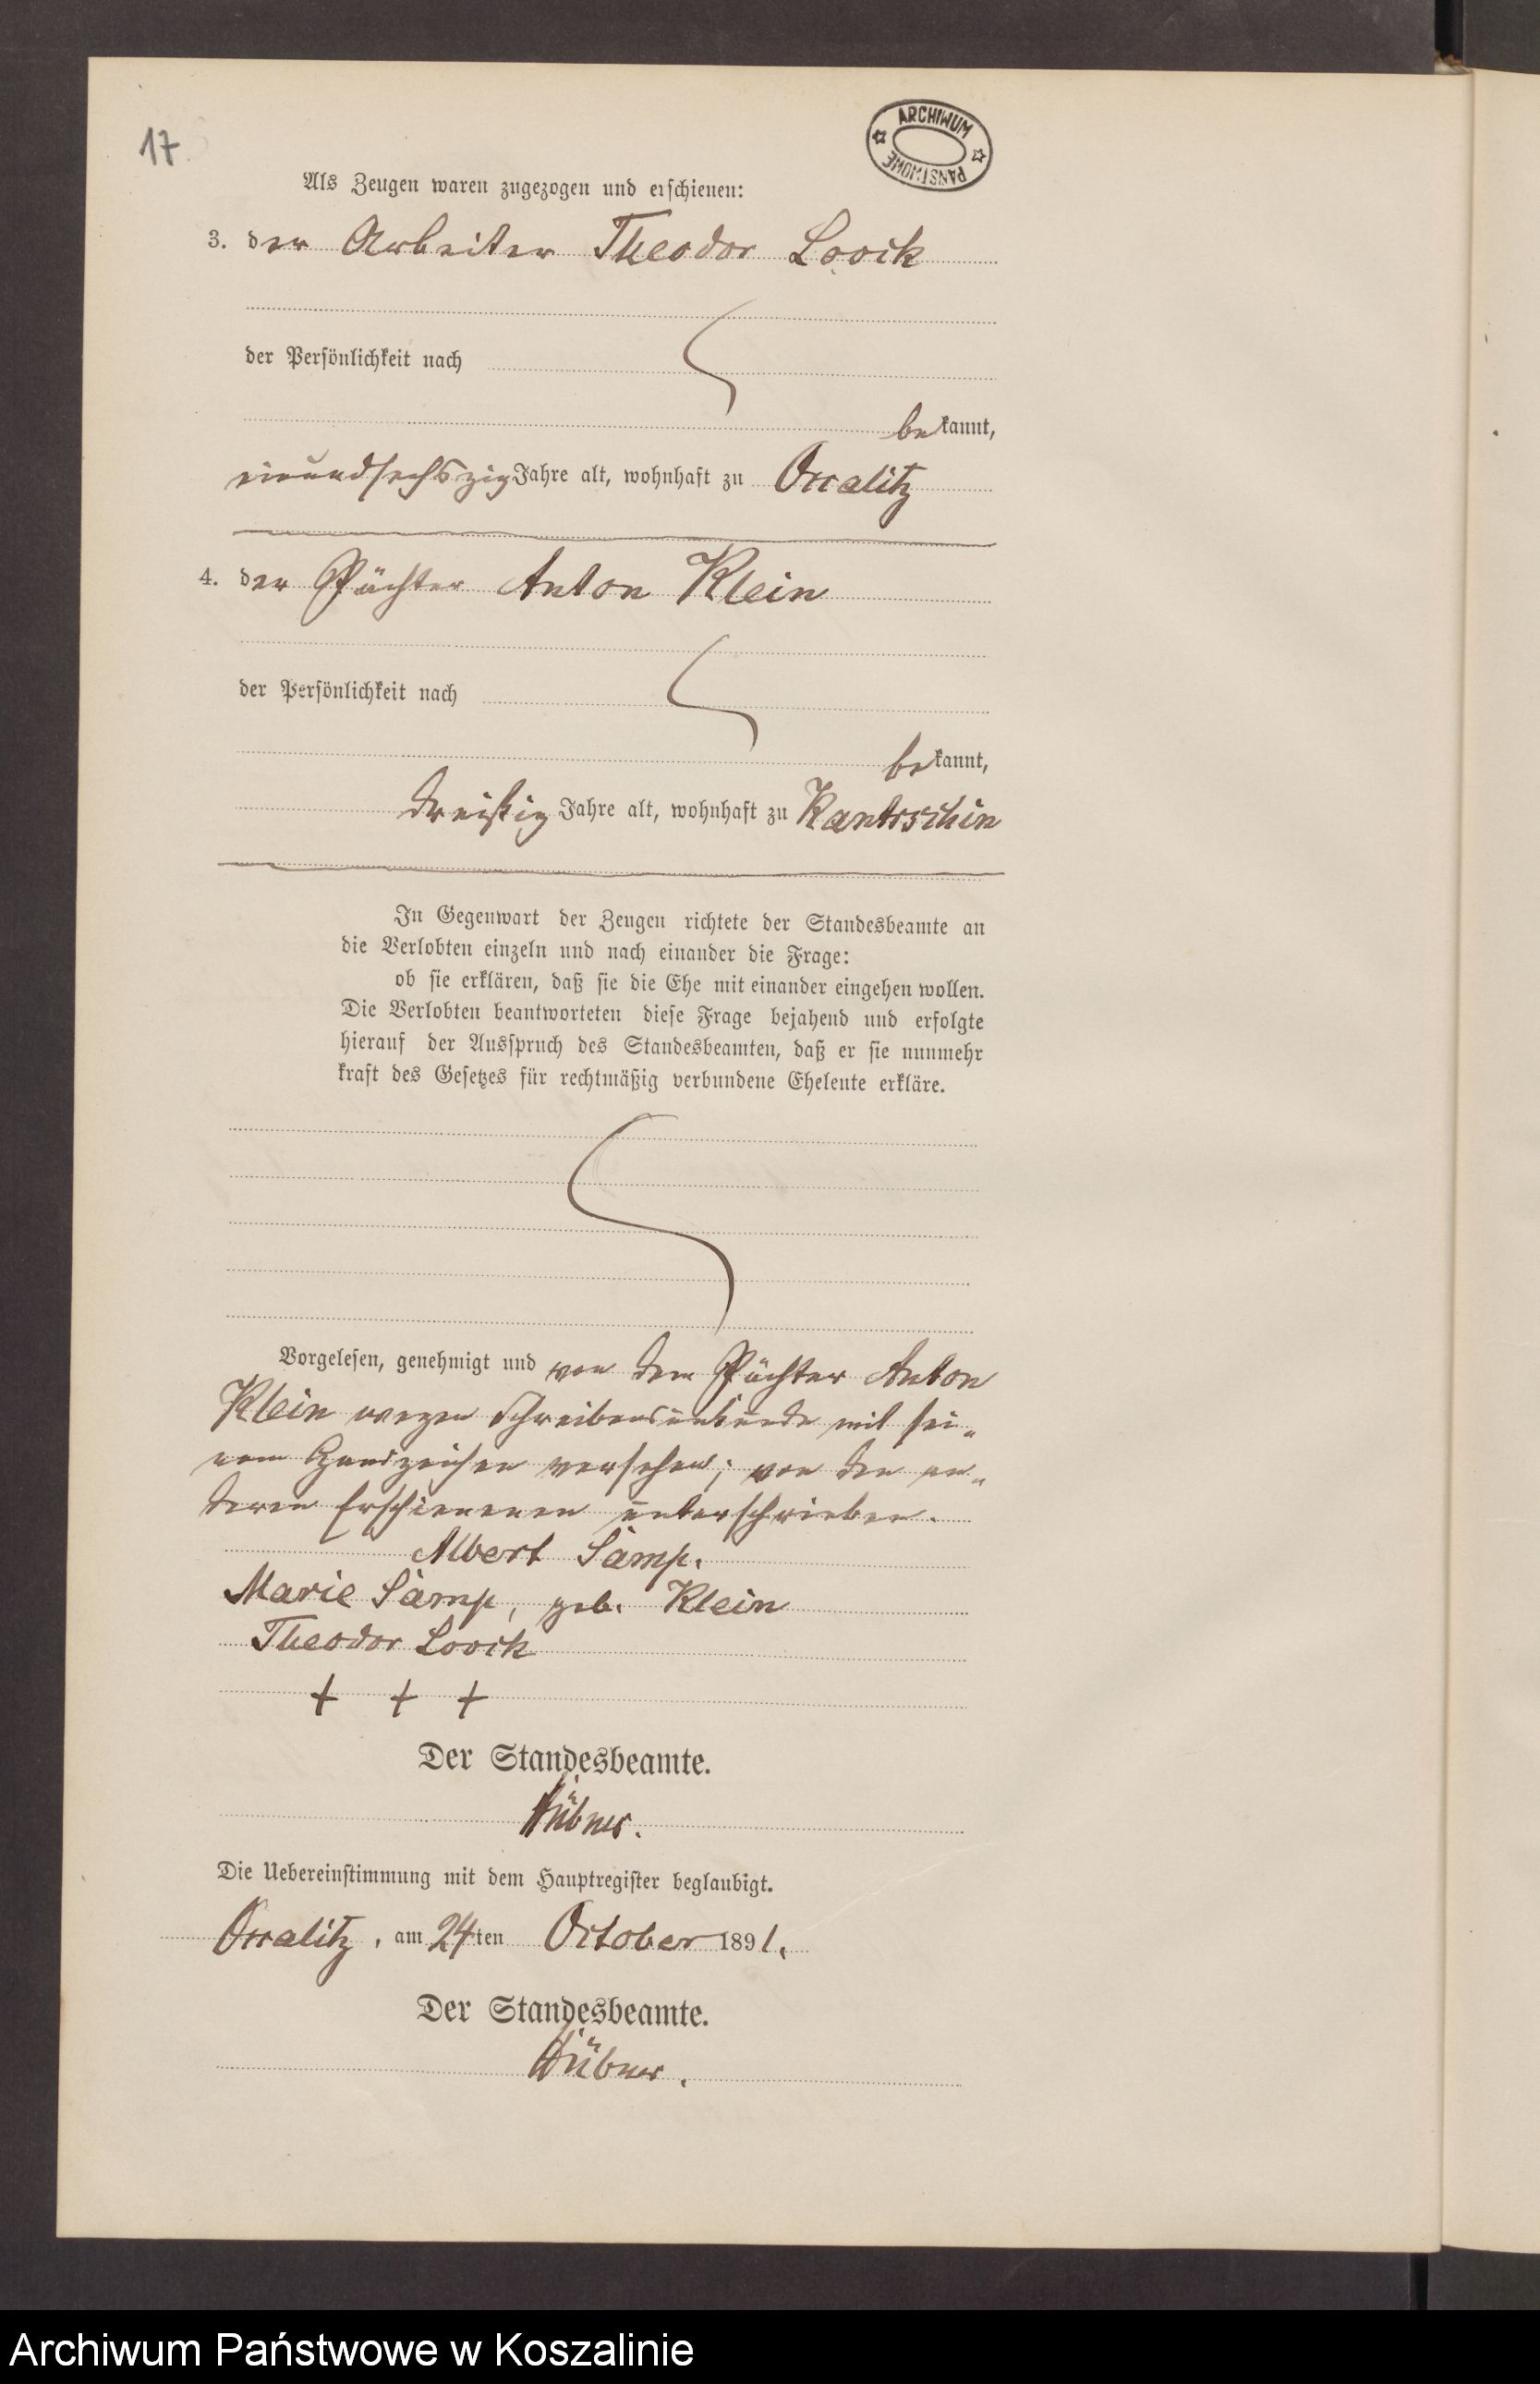 17
ARCHIWUM PAŃSTWOWE
Als Zeugen waren zugezogen und erschienen:
3. der Arbeiter Theodor Loock
der Persönlichkeit nach
bekannt,
einundsechszig Jahre alt, wohnhaft zu Occalitz
4. der Pächter Anton Klein
der Persönlichkeit nach
bekannt,
dreißig Jahre alt, wohnhaft zu Kantrschin
In Gegenwart der Zeugen richtete der Standesbeamte an
die Verlobten einzeln und nach einander die Frage:
ob sie erklären, daß sie die Ehe mit einander eingehen wollen.
Die Verlobten beantworteten diese Frage bejahend und erfolgte
hierauf der Ausspruch des Standesbeamten, daß er sie nunmehr
kraft des Gesetzes für rechtmäßig verbundene Eheleute erkläre.
Vorgelesen, genehmigt und von dem Pächter Anton
Klein wegen Schreibensunkunde mit sei-
nem Handzeichen versehen; von den an-
deren Erschienenen unterschrieben.
Albert Sämp.
Marie Sämp, geb. Klein
Theodor Loock
+ + +
Der Standesbeamte.
Hübner.
Die Uebereinstimmung mit dem Hauptregister beglaubigt.
Occalitz, am 24ten October 1891.
Der Standesbeamte.
Hübner.
Archiwum Państwowe w Koszalinie